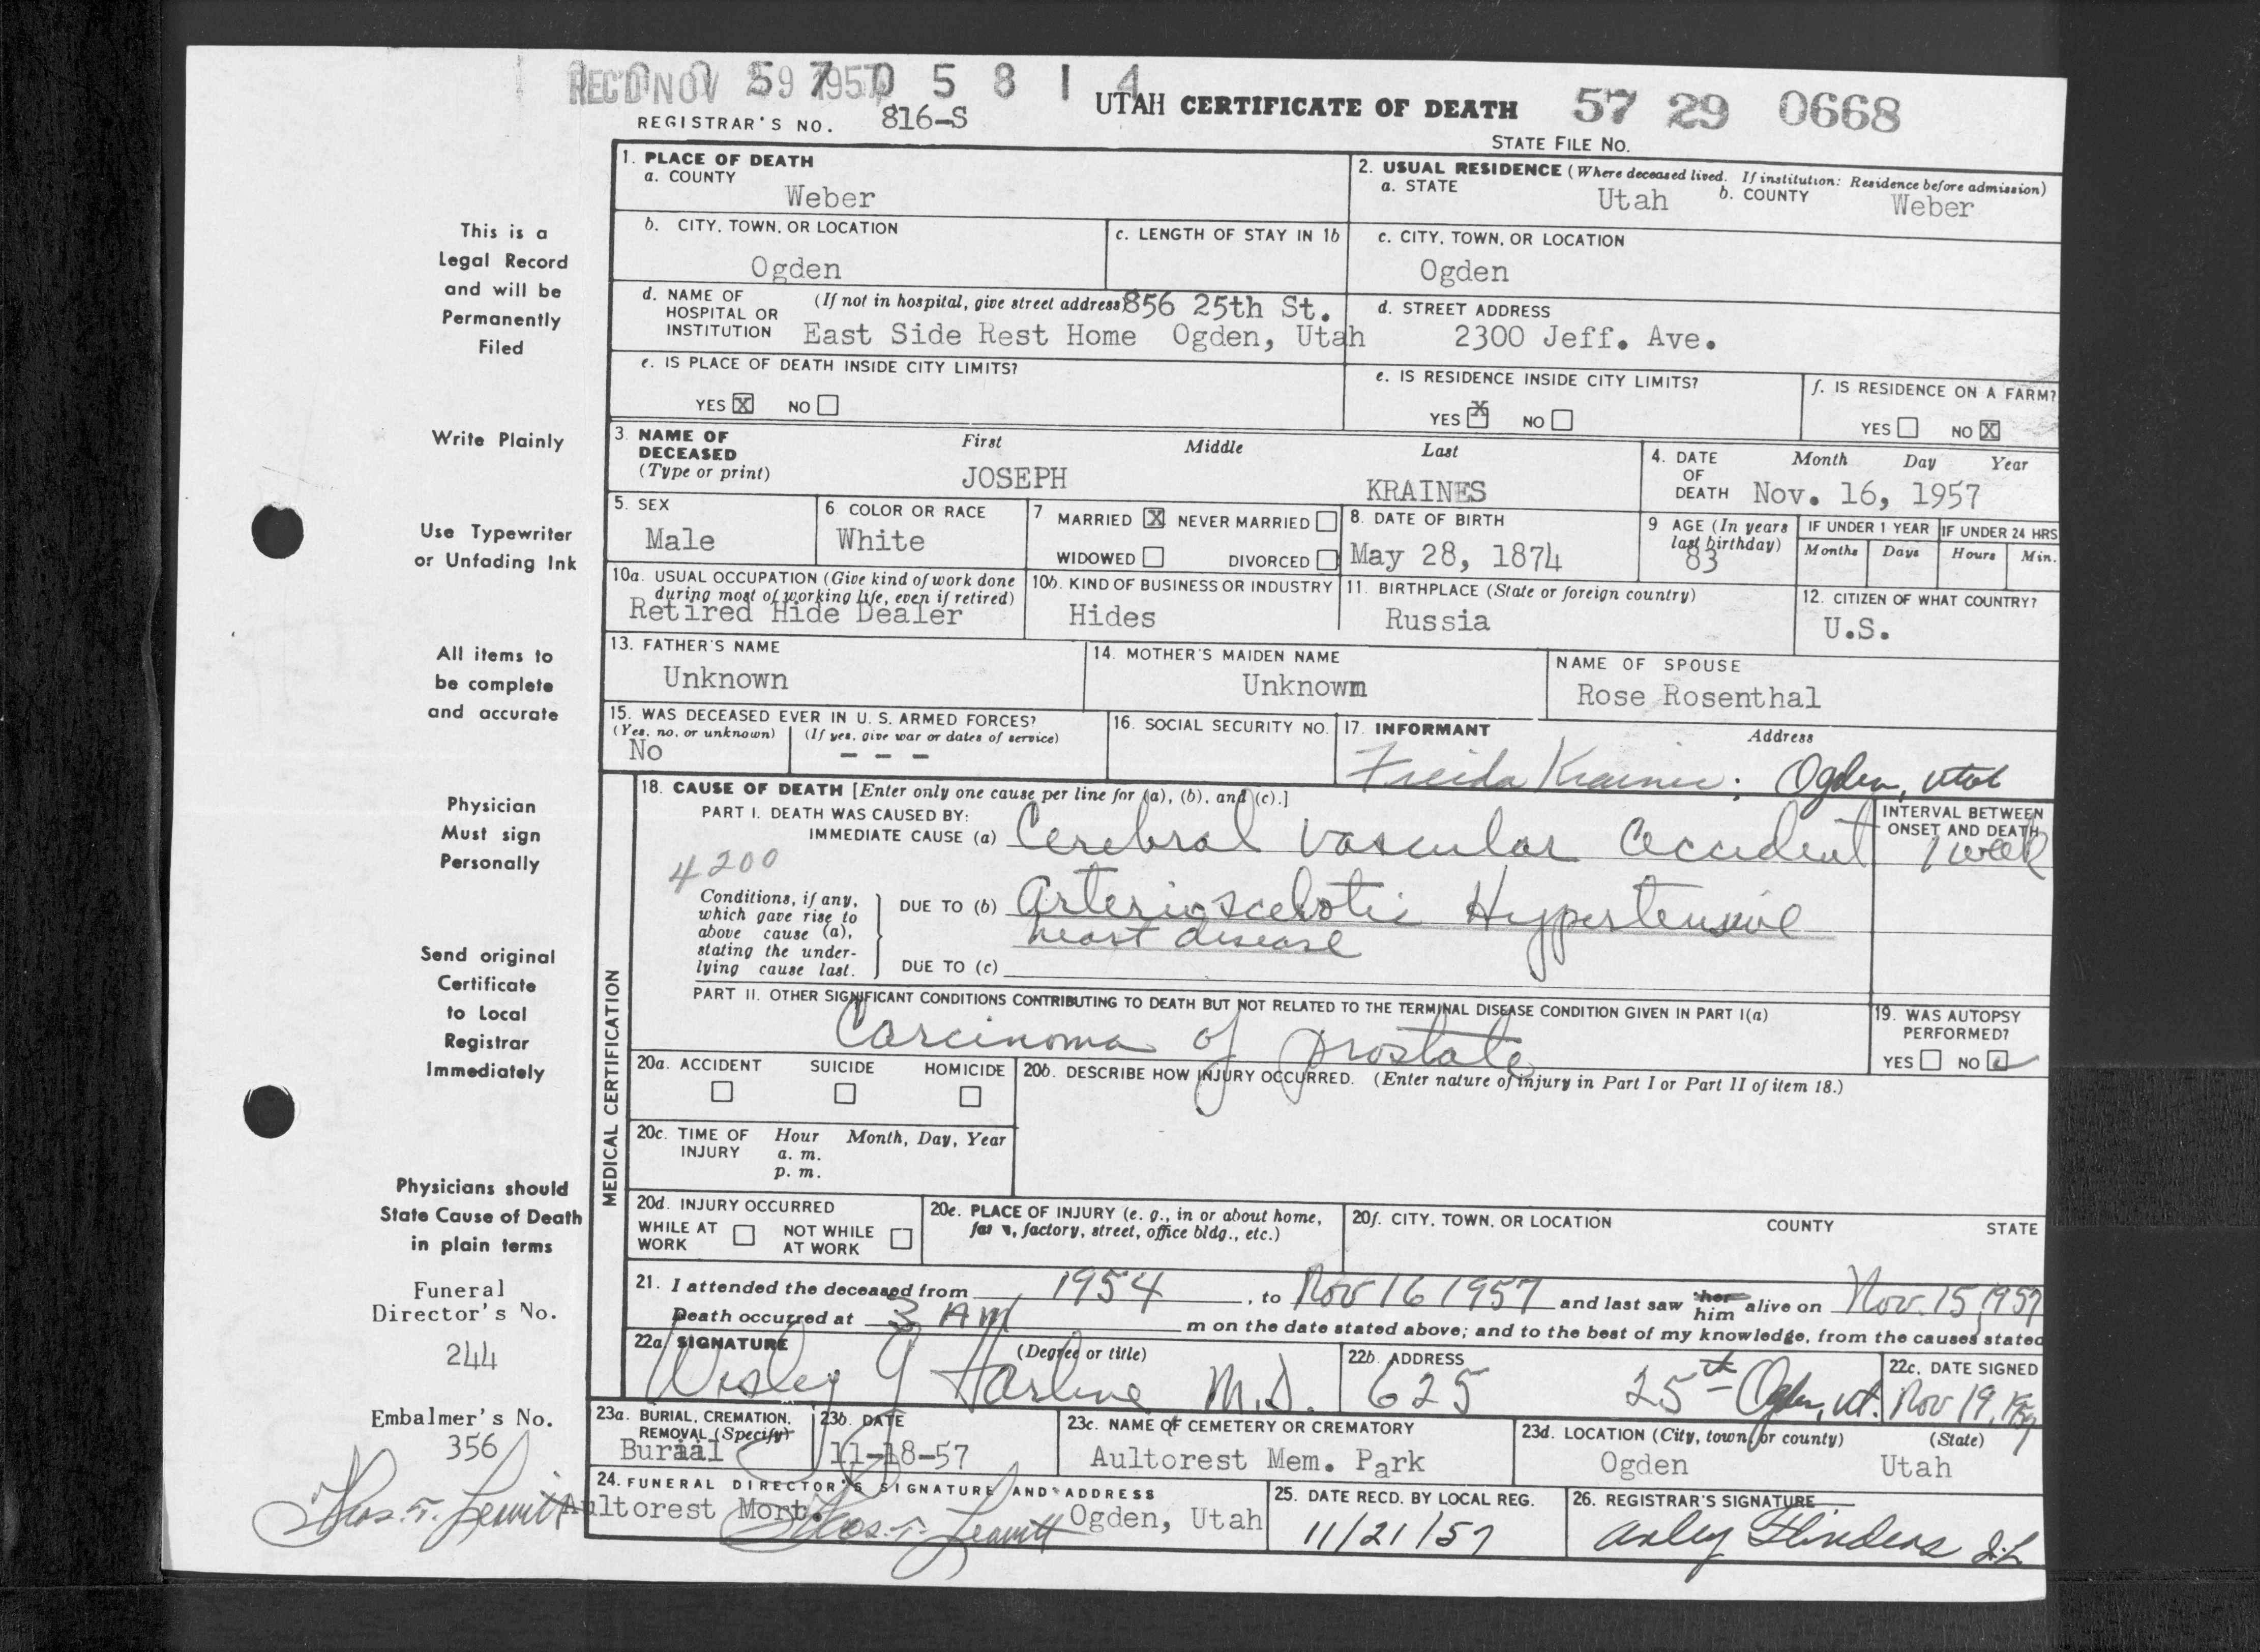 REC'D NOV 29 1957 0 5 8 1 4
UTAH CERTIFICATE OF DEATH 57 29 0668
REGISTRAR'S NO. 816-S
STATE FILE No.
1. PLACE OF DEATH
a. COUNTY
Weber
2. USUAL RESIDENCE (Where deceased lived. If institution: Residence before admission)
a. STATE Utah b. COUNTY Weber
b. CITY, TOWN, OR LOCATION
Ogden
c. LENGTH OF STAY IN 1b
c. CITY, TOWN, OR LOCATION
Ogden
d. NAME OF HOSPITAL OR INSTITUTION
(If not in hospital, give street address) 856 25th St.
East Side Rest Home Ogden, Utah
d. STREET ADDRESS
2300 Jeff. Ave.
e. IS PLACE OF DEATH INSIDE CITY LIMITS?
YES X NO
e. IS RESIDENCE INSIDE CITY LIMITS?
YES X NO
f. IS RESIDENCE ON A FARM?
YES NO X
3. NAME OF DECEASED (Type or print)
First Middle Last
JOSEPH KRAINES
4. DATE OF DEATH
Month Day Year
Nov. 16, 1957
5. SEX
Male
6. COLOR OR RACE
White
7 MARRIED X NEVER MARRIED
WIDOWED DIVORCED
8. DATE OF BIRTH
May 28, 1874
9 AGE (In years last birthday)
83
IF UNDER 1 YEAR
Months Days
IF UNDER 24 HRS
Hours Min.
10a. USUAL OCCUPATION (Give kind of work done during most of working life, even if retired)
Retired Hide Dealer
10b. KIND OF BUSINESS OR INDUSTRY
Hides
11. BIRTHPLACE (State or foreign country)
Russia
12. CITIZEN OF WHAT COUNTRY?
U.S.
13. FATHER'S NAME
Unknown
14. MOTHER'S MAIDEN NAME
Unknown
NAME OF SPOUSE
Rose Rosenthal
15. WAS DECEASED EVER IN U. S. ARMED FORCES?
(Yes, no, or unknown) (If yes, give war or dates of service)
No - - -
16. SOCIAL SECURITY NO.
17. INFORMANT Address
Freida Kraines; Ogden, Utah
MEDICAL CERTIFICATION
18. CAUSE OF DEATH [Enter only one cause per line for (a), (b), and (c).]
PART I. DEATH WAS CAUSED BY:
IMMEDIATE CAUSE (a) Cerebral Vascular Accident
INTERVAL BETWEEN ONSET AND DEATH
1 week
4200
Conditions, if any, which gave rise to above cause (a), stating the underlying cause last.
DUE TO (b) Arterioscelrotic Hypertensive
heart disease
DUE TO (c)
PART II. OTHER SIGNIFICANT CONDITIONS CONTRIBUTING TO DEATH BUT NOT RELATED TO THE TERMINAL DISEASE CONDITION GIVEN IN PART I(a)
Carcinoma of prostate
19. WAS AUTOPSY PERFORMED?
YES NO
20a. ACCIDENT SUICIDE HOMICIDE
20b. DESCRIBE HOW INJURY OCCURRED. (Enter nature of injury in Part I or Part II of item 18.)
20c. TIME OF INJURY Hour Month, Day, Year
a. m.
p. m.
20d. INJURY OCCURRED
WHILE AT WORK NOT WHILE AT WORK
20e. PLACE OF INJURY (e. g., in or about home, farm, factory, street, office bldg., etc.)
20f. CITY, TOWN, OR LOCATION COUNTY STATE
21. I attended the deceased from 1954, to Nov 16 1957 and last saw her him alive on Nov. 15, 1957
Death occurred at 3 AM m on the date stated above; and to the best of my knowledge, from the causes stated
22a. SIGNATURE (Degree or title)
Wesley G Harline M.D.
22b. ADDRESS
625 25th Ogden, Ut.
22c. DATE SIGNED
Nov 19, 1957
23a. BURIAL, CREMATION, REMOVAL (Specify)
Burial
23b. DATE
11-18-57
23c. NAME OF CEMETERY OR CREMATORY
Aultorest Mem. Park
23d. LOCATION (City, town, or county) (State)
Ogden Utah
24. FUNERAL DIRECTOR'S SIGNATURE AND ADDRESS
Aultorest Mort. Thos. T. Leavitt Ogden, Utah
25. DATE RECD. BY LOCAL REG.
11/21/57
26. REGISTRAR'S SIGNATURE
Flinders
This is a
Legal Record
and will be
Permanently
Filed
Write Plainly
Use Typewriter
or Unfading Ink
All items to
be complete
and accurate
Physician
Must sign
Personally
Send original
Certificate
to Local
Registrar
Immediately
Physicians should
State Cause of Death
in plain terms
Funeral
Director's No.
244
Embalmer's No.
356
Thos. T. Leavitt